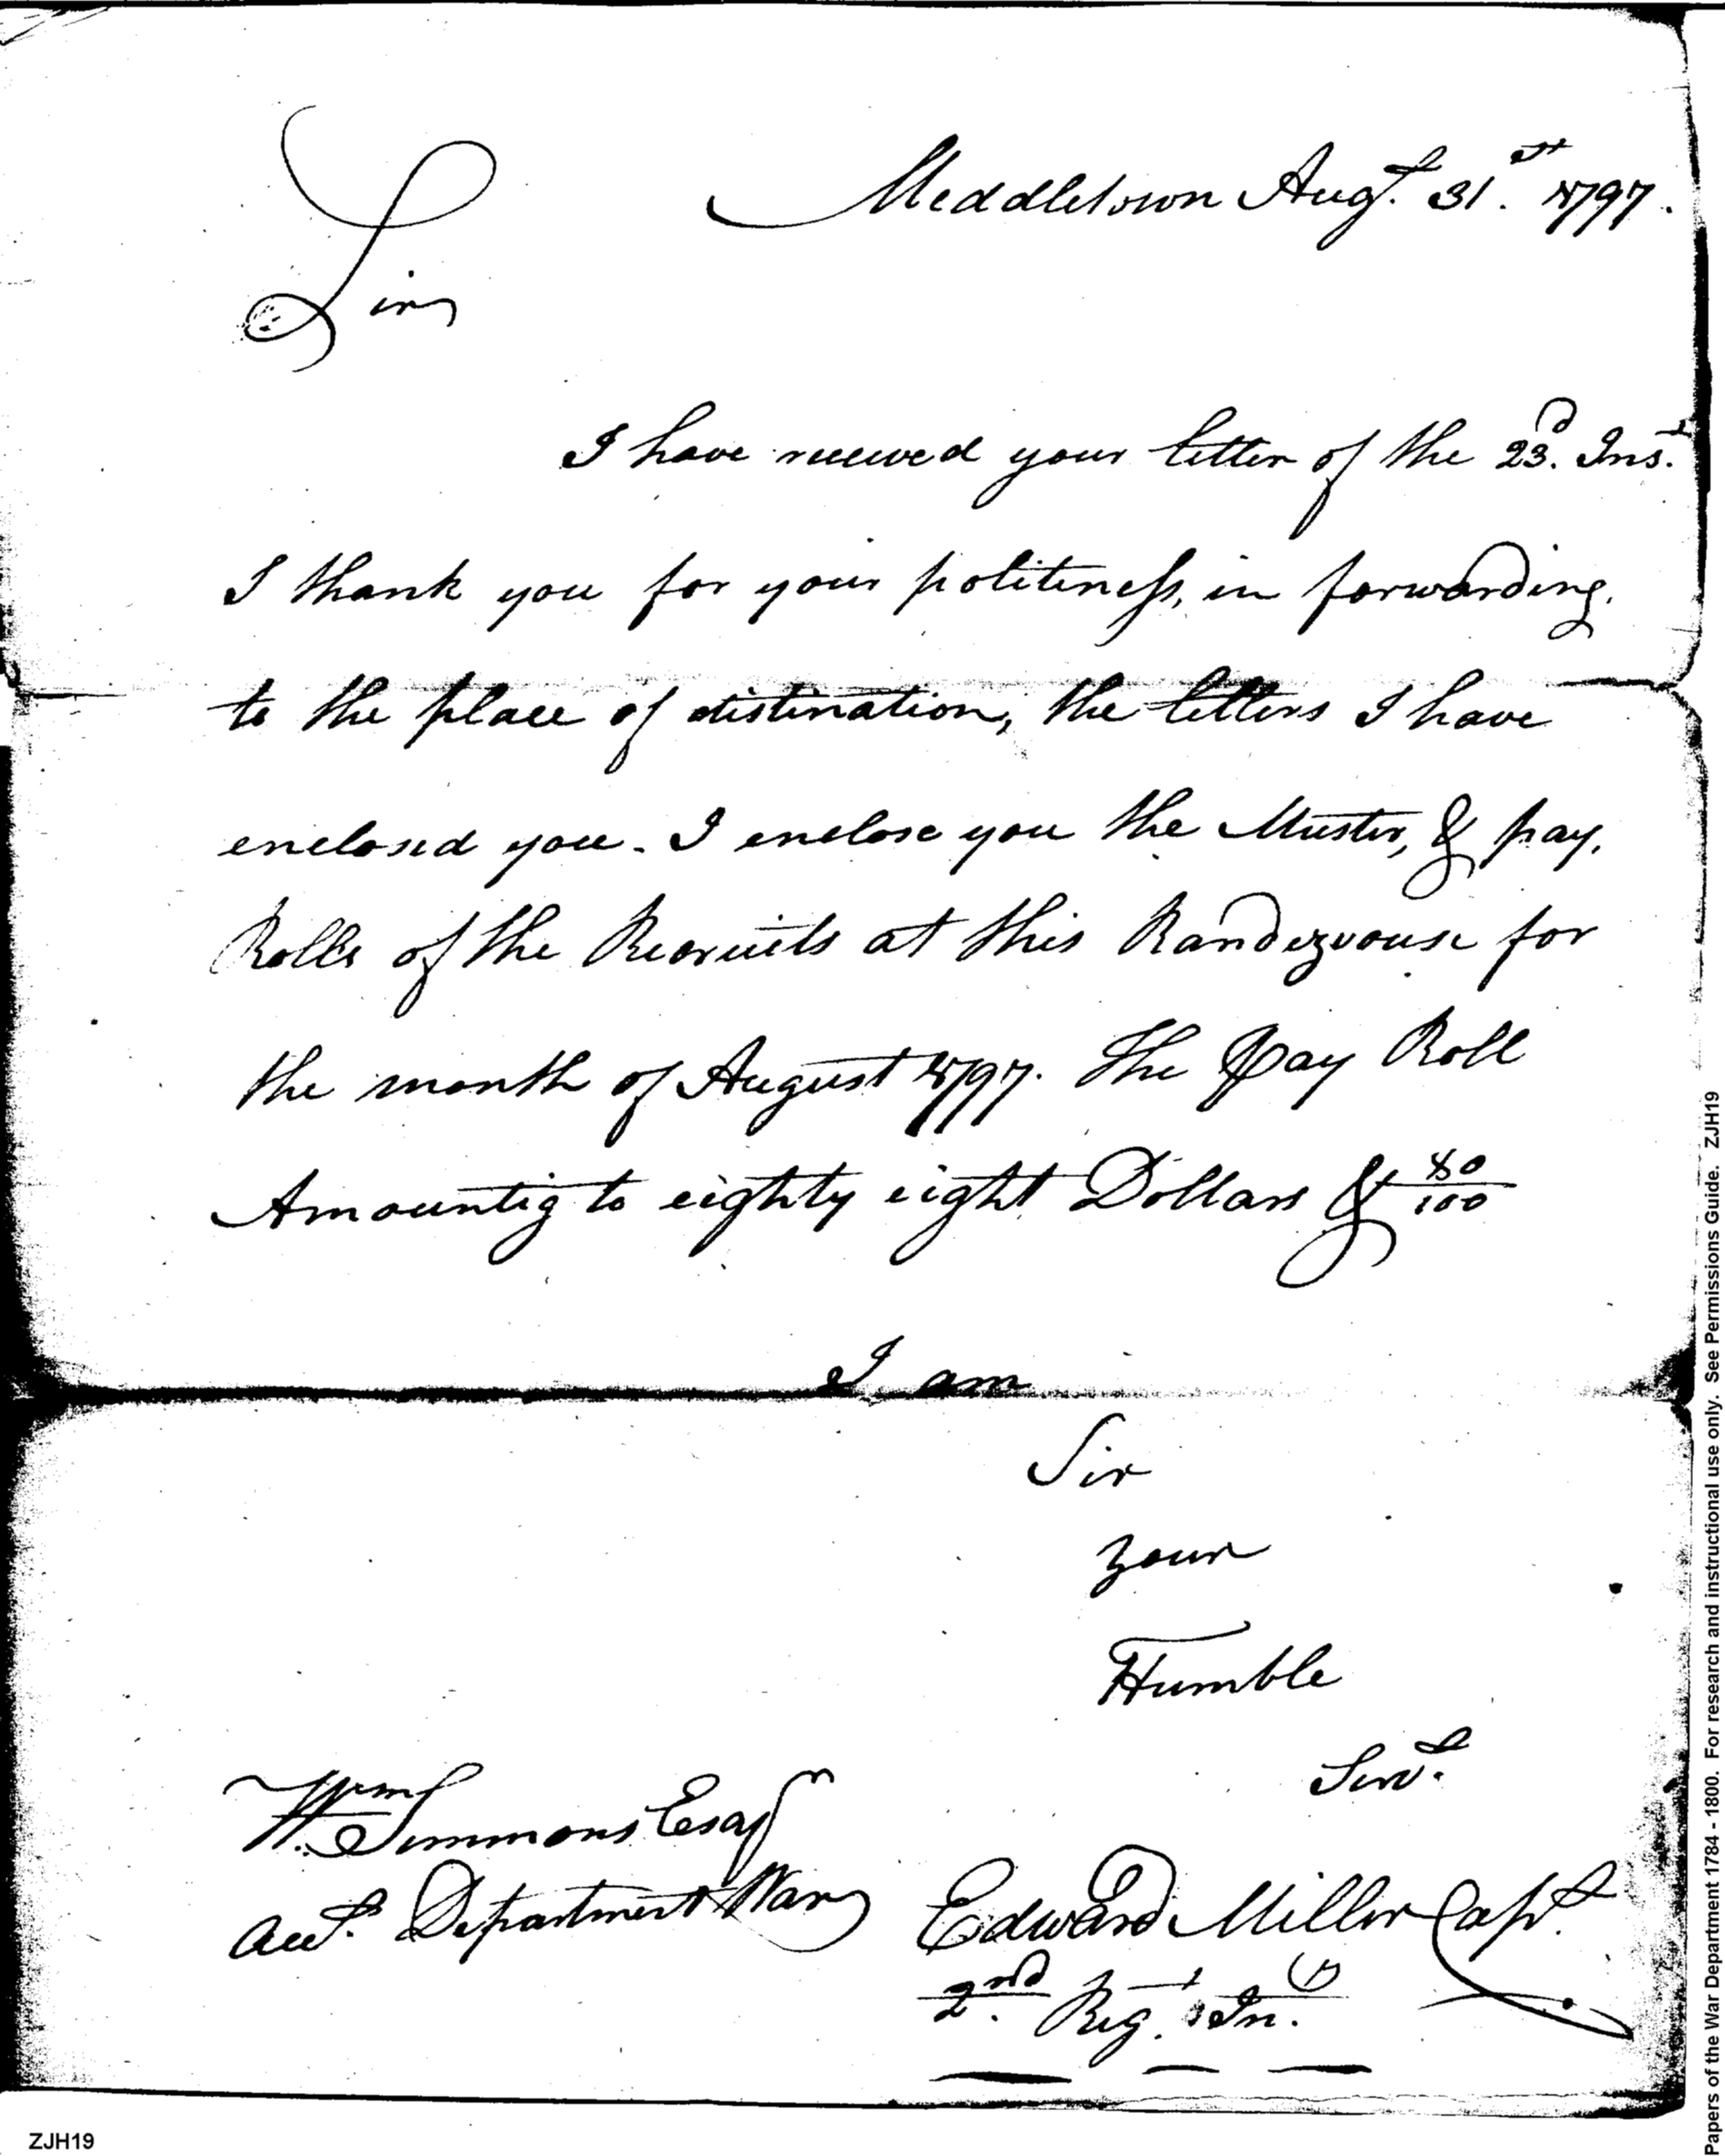 Meddletown Augt. 31st. 1797.
Sir
I have received your letter of the 23d. Inst.
I thank you for your politeness, in forwarding,
to the place of distination, the letters I have
enclosed you. I enclose you the Muster, & pay,
Rolls of the Recruits at this Randezvouse for
the month of August 1797. The Pay Roll
Amountig to eighty eight Dollars & 80/100
I am
Sir
your
Humble
Servt.
Wm. Simmons Esqr
Acct. Department War
Edward Miller Capt.
2nd. Regt. In.
ZJH19
Papers of the War Department 1784 - 1800. For research and instructional use only. See Permissions Guide. ZJH19